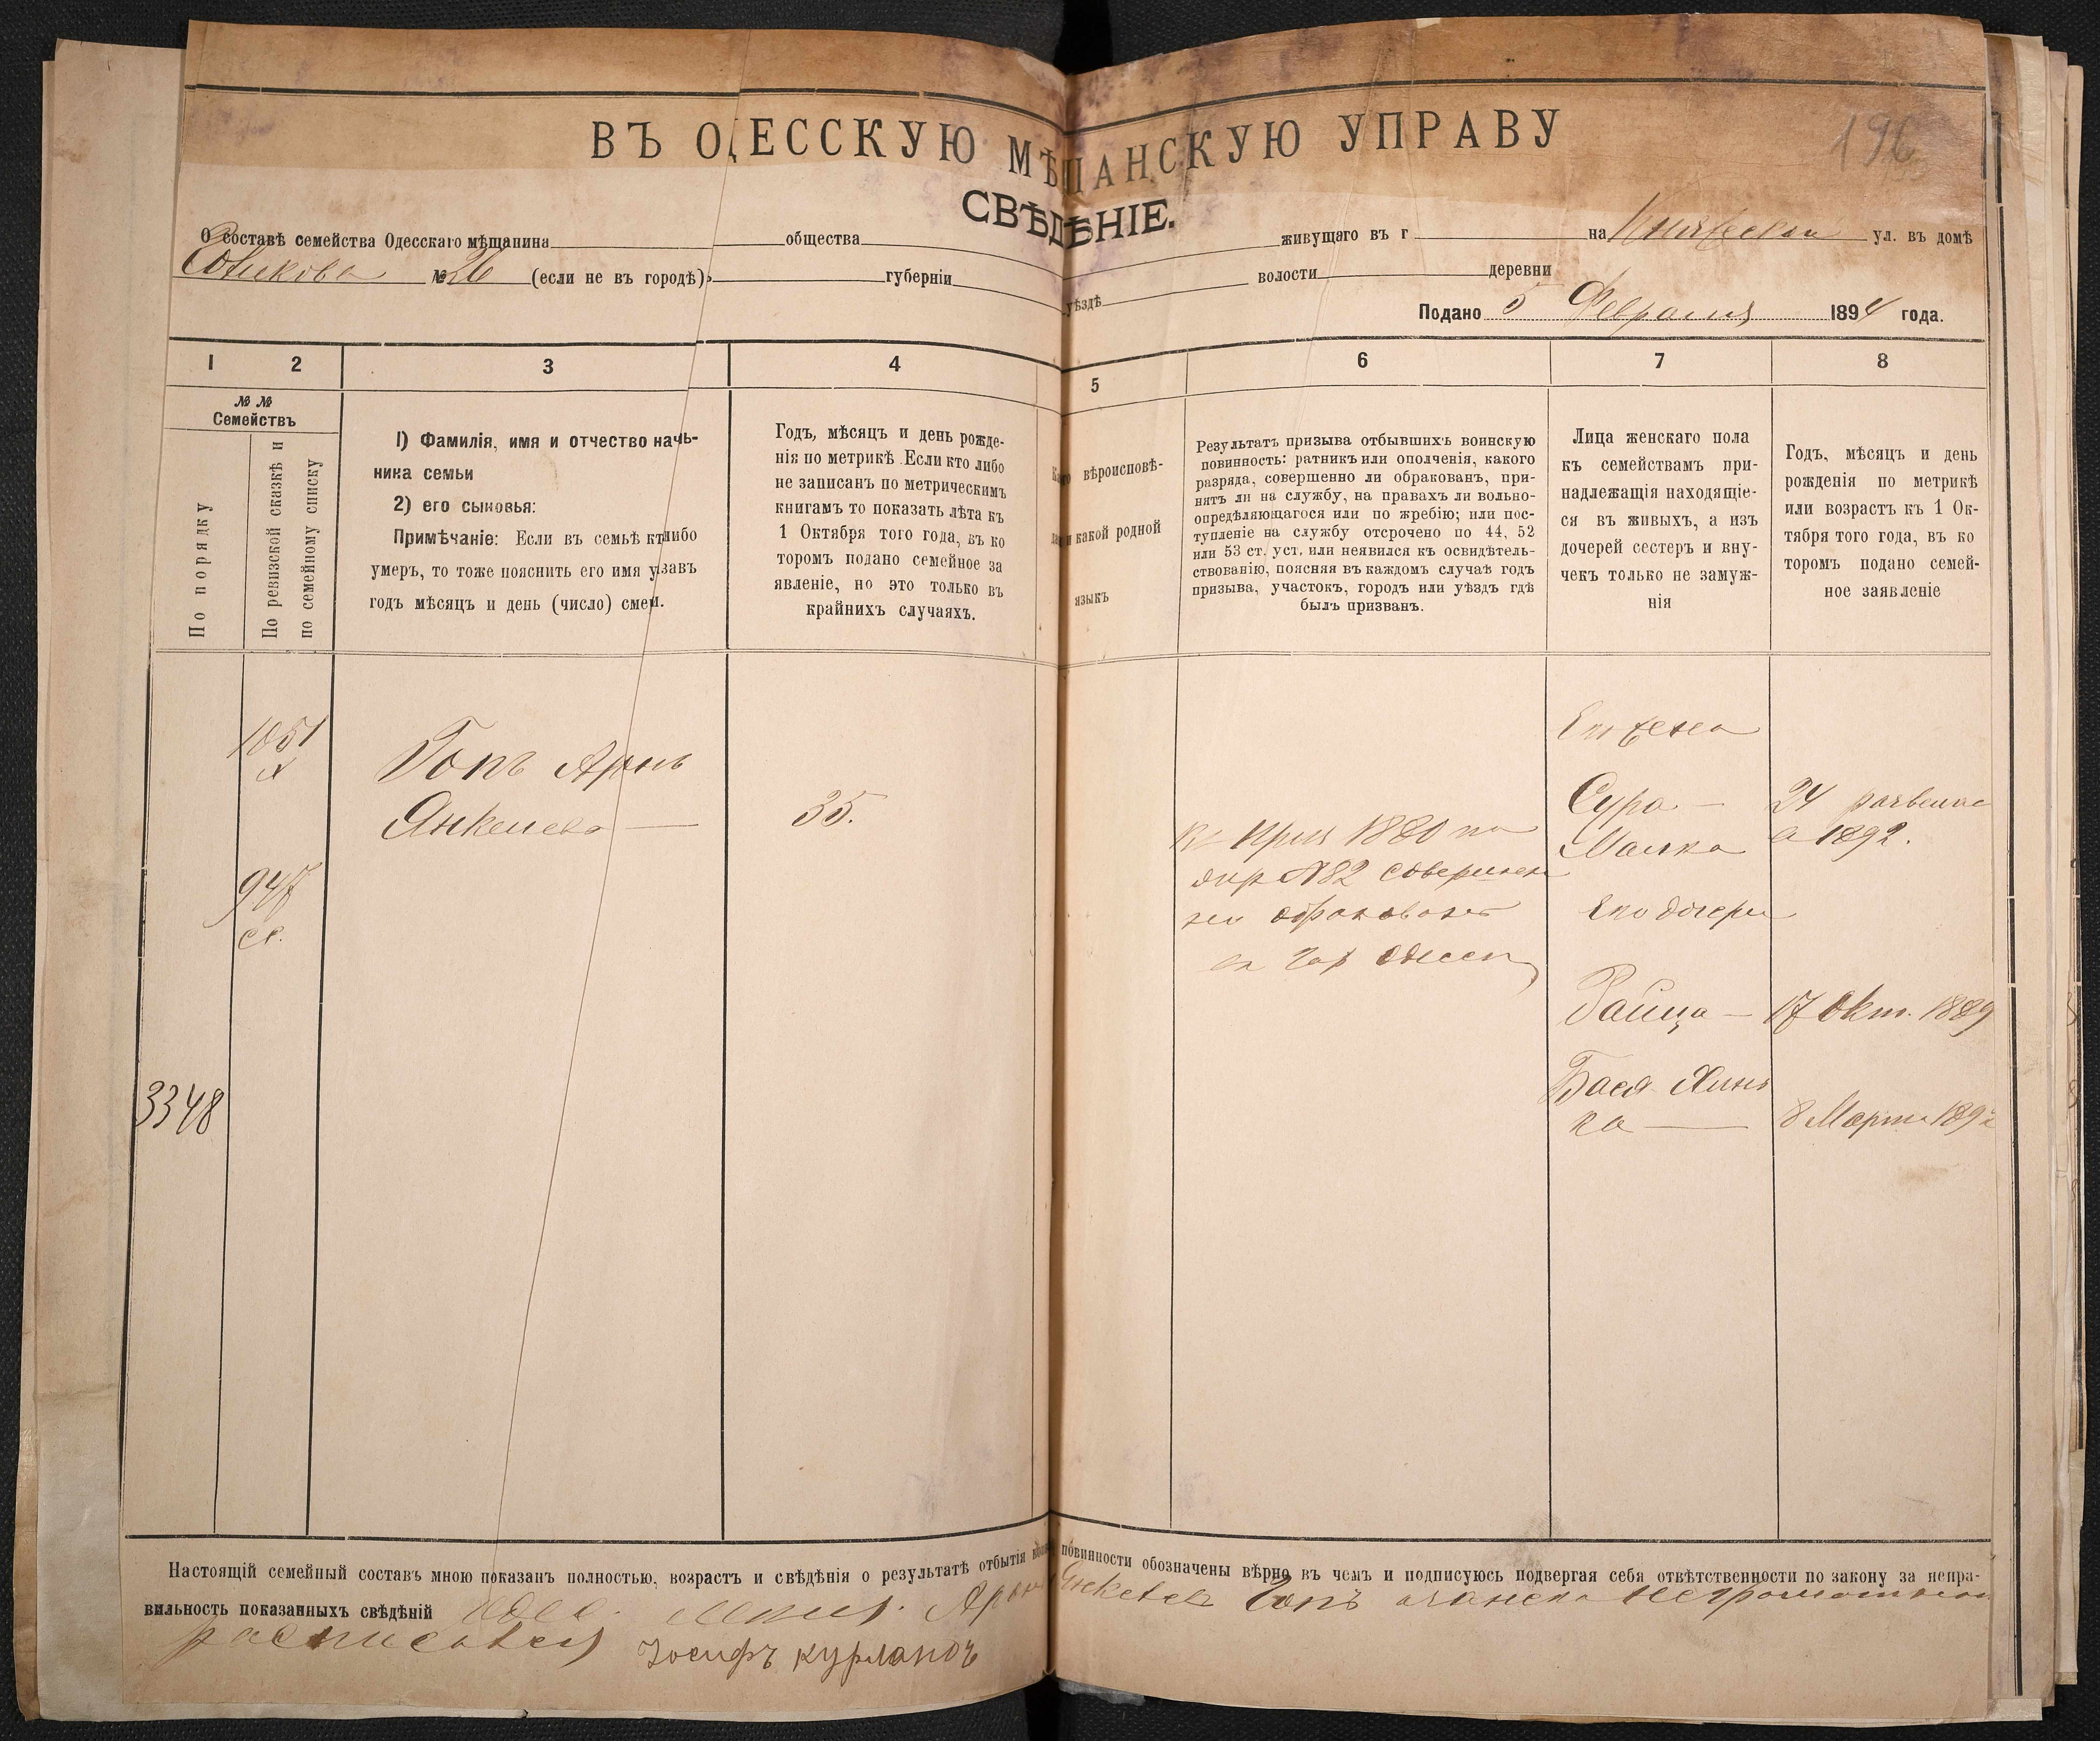 196
ВЪ ОДЕССКУЮ МѢЩАНСКУЮ УПРАВУ
СВѢДѢНІЕ.
О составѣ семейства Одесскаго мѣщанина общества живущаго въ г на Княжеской ул. въ домѣ
Новикова № 26 (если не въ городѣ) губерніи уѣздѣ волости деревни
Подано 5 Февраля 1894 года.
1 2 3 4 5 6 7 8
№ №
Семействъ
По порядку
По ревизской сказкѣ и
по семейному списку
1) Фамилія, имя и отчество началь-
ника семьи
2) его сыновья:
Примѣчаніе: Если въ семьѣ кто либо
умеръ, то тоже пояснить его имя указавъ
годъ мѣсяцъ и день (число) смерти.
Годъ, мѣсяцъ и день рожде-
нія по метрикѣ. Если кто либо
не записанъ по метрическимъ
книгамъ то показать лѣта къ
1 Октября того года, въ ко
торомъ подано семейное за
явленіе, но это только въ
крайнихъ случаяхъ.
вѣроисповѣ-
и какой родной
языкъ
Результатъ призыва отбывшихъ воинскую
повинность: ратникъ или ополченія, какого
разряда, совершенно ли обракованъ, при-
нятъ ли на службу, на правахъ ли вольно-
опредѣляющагося или по жребію; или пос-
тупленіе на службу отсрочено по 44, 52
или 53 ст. уст. или неявился къ освидѣтель-
ствованію, поясняя въ каждомъ случаѣ годъ
призыва, участокъ, городъ или уѣздъ гдѣ
былъ призванъ.
Лица женскаго пола
къ семействамъ при-
надлежащія находящіе-
ся въ живыхъ, а изъ
дочерей сестеръ и вну-
чекъ только не замуж-
нія
Годъ, мѣсяцъ и день
рожденія по метрикѣ
или возрастъ къ 1 Ок-
тября того года, въ ко
торомъ подано семей-
ное заявленіе
1051
947
3348
Гопъ Аронъ
Янкелевъ —
35.
1880 по
№82 совершен
но обракованъ
Одессы
Его жена
Сура —
Малка
24
в 1892.
Его дочери
Райца — 17 Окт. 1889
Бася Хинь
ка — 8 Марта 189
Настоящій семейный составъ мною показанъ полностью, возрастъ и свѣдѣнія о результатѣ отбытія повинности обозначены вѣрно въ чемъ и подписуюсь подвергая себя отвѣтственности по закону за непра-
вильность показанныхъ свѣдѣній Гопъ
росписался Іосифъ Курландъ